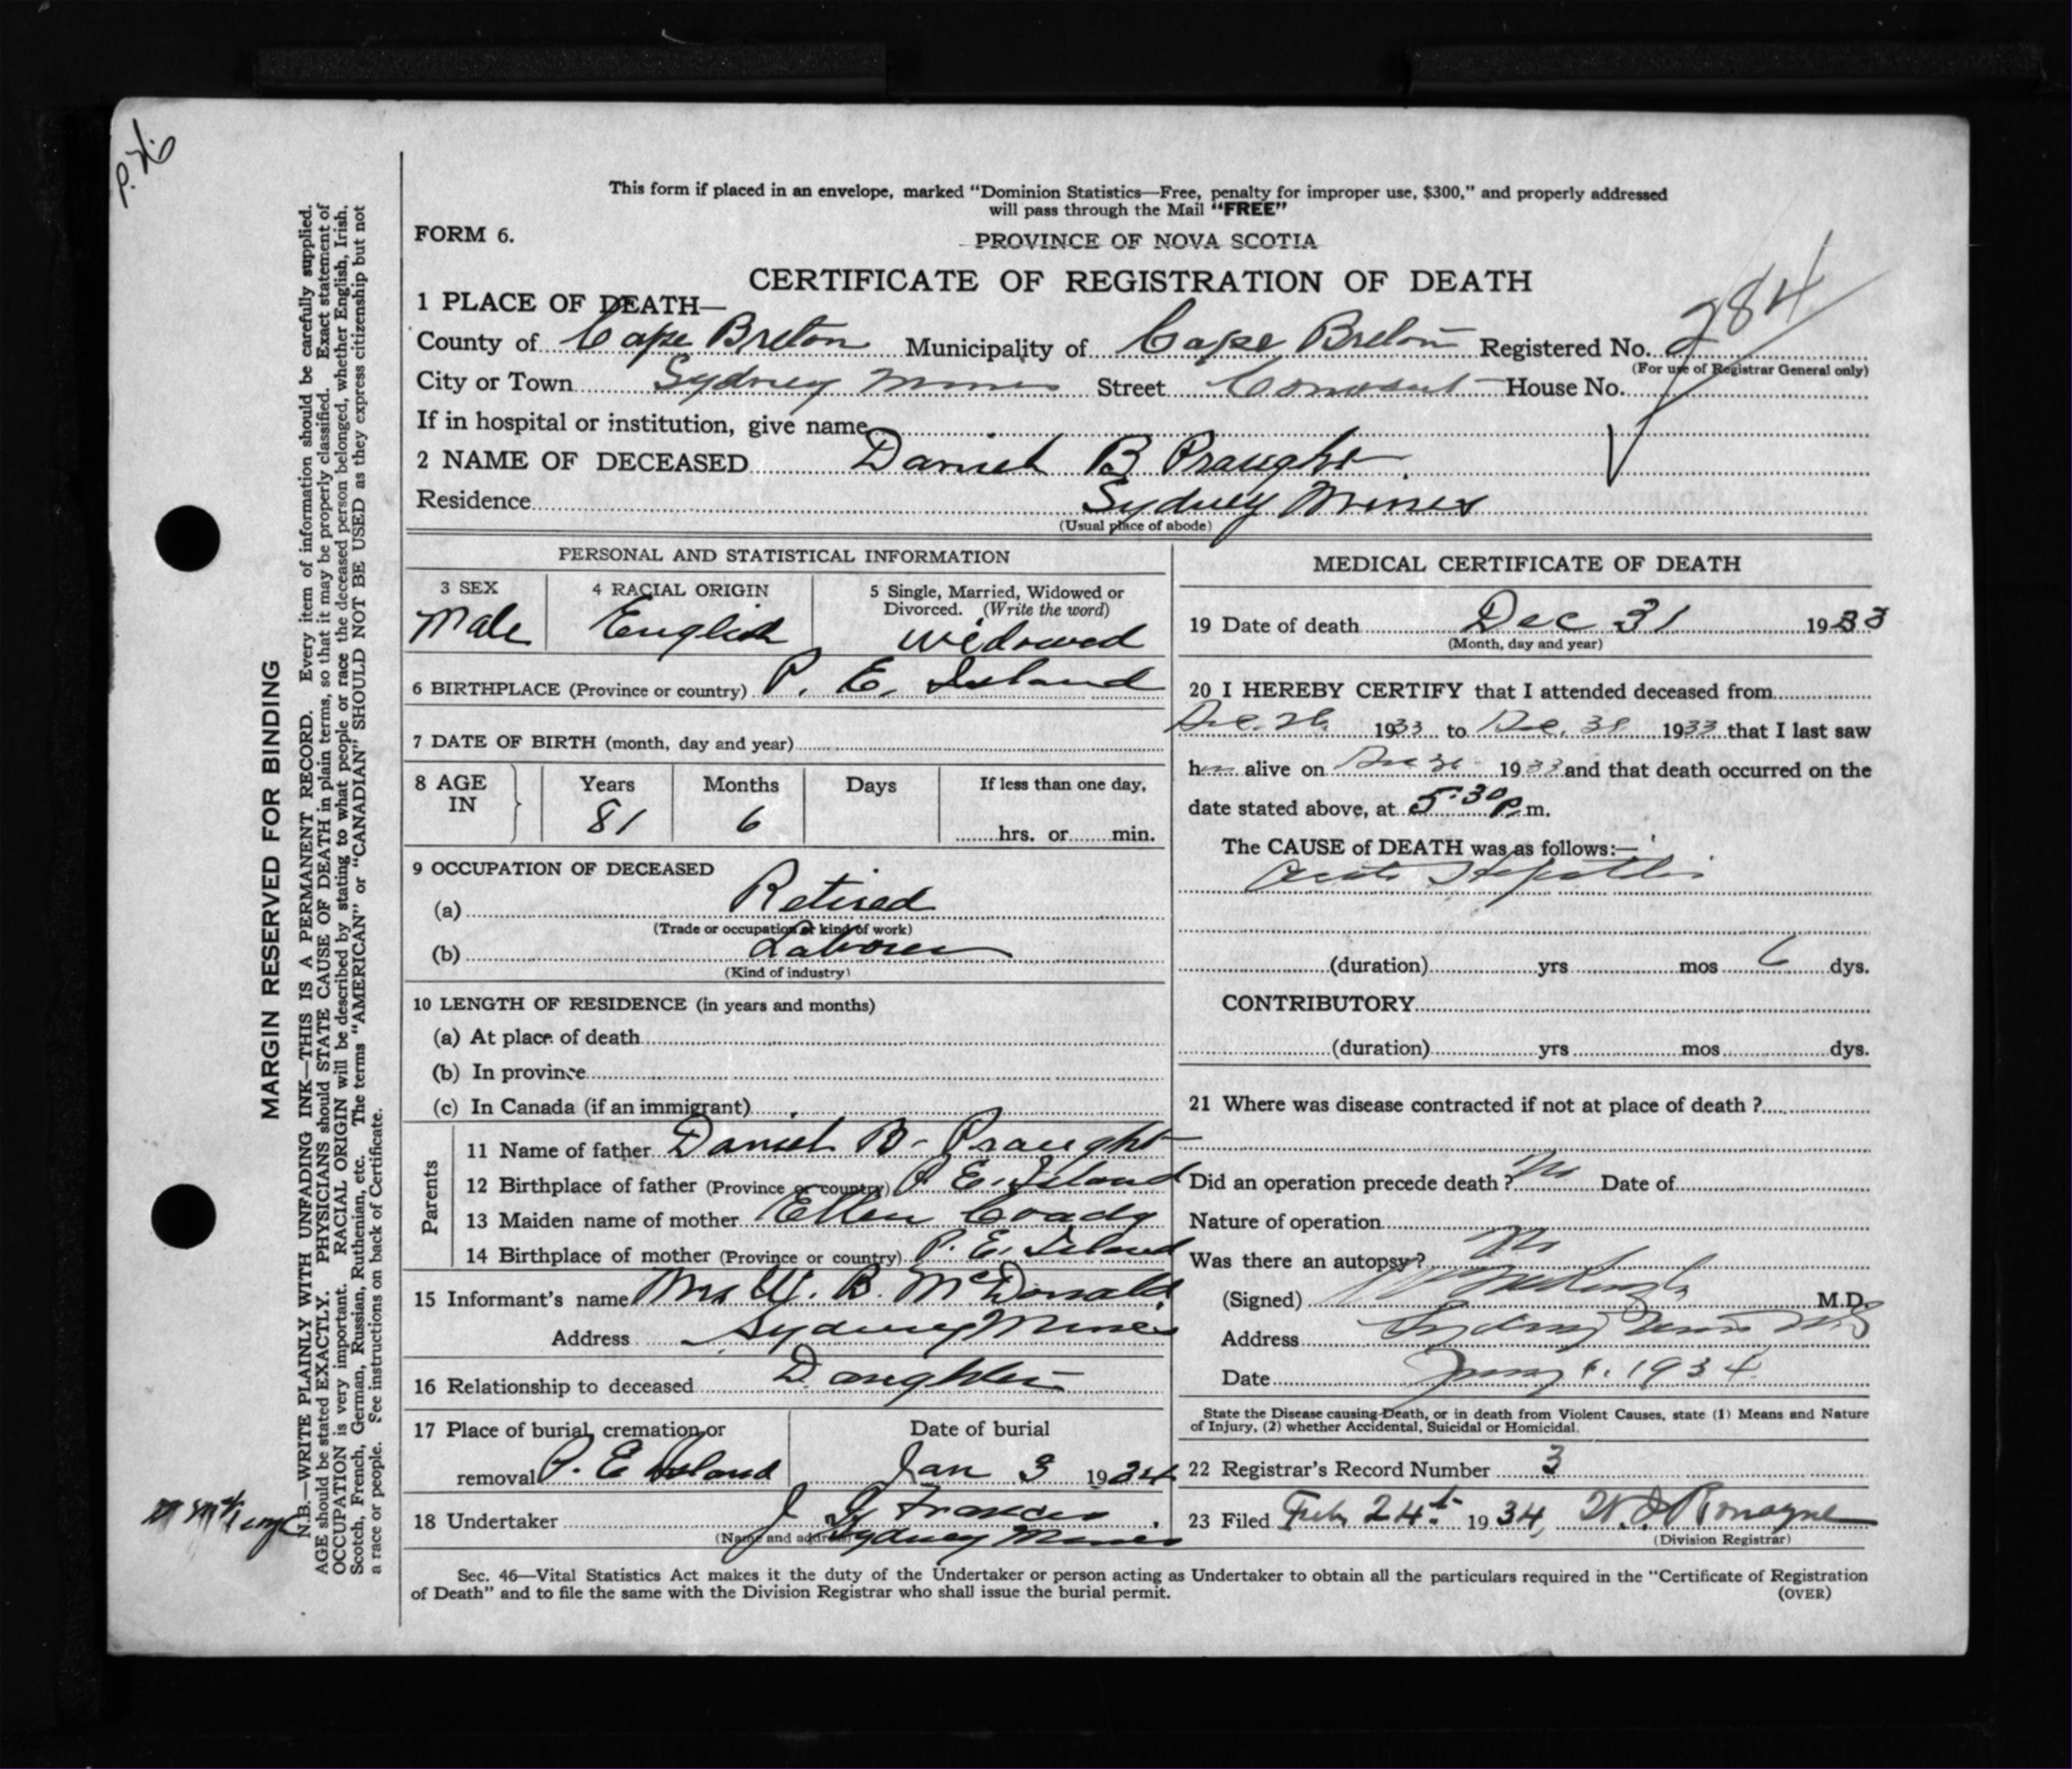 P. 76
This form if placed in an envelope, marked "Dominion Statistics—Free, penalty for improper use, $300," and properly addressed
will pass through the Mail "FREE"
FORM 6.
PROVINCE OF NOVA SCOTIA
CERTIFICATE OF REGISTRATION OF DEATH
1 PLACE OF DEATH—
County of Cape Breton Municipality of Cape Breton Registered No. 284
(For use of Registrar General only)
City or Town Sydney Mines Street House No.
If in hospital or institution, give name
2 NAME OF DECEASED Daniel B Praught
Residence Sydney Mines
(Usual place of abode)
PERSONAL AND STATISTICAL INFORMATION
3 SEX Male
4 RACIAL ORIGIN English
5 Single, Married, Widowed or
Divorced. (Write the word)
Widowed
6 BIRTHPLACE (Province or country) P. E. Island
7 DATE OF BIRTH (month, day and year)
8 AGE IN
Years Months Days If less than one day,
81 6 hrs. or min.
9 OCCUPATION OF DECEASED
(a) Retired
(Trade or occupation or kind of work)
(b) Laborer
(Kind of industry)
10 LENGTH OF RESIDENCE (in years and months)
(a) At place of death
(b) In province
(c) In Canada (if an immigrant)
Parents
11 Name of father Daniel B. Praught
12 Birthplace of father (Province or country) P. E. Island
13 Maiden name of mother Ellen Coady
14 Birthplace of mother (Province or country) P. E. Island
15 Informant's name Mrs W. B. McDonald
Address Sydney Mines
16 Relationship to deceased Daughter
17 Place of burial, cremation or
removal P. E. Island
Date of burial
Jan 3 1934
18 Undertaker J Francis
(Name and address) Sydney Mines
MEDICAL CERTIFICATE OF DEATH
19 Date of death Dec 31 1933
(Month, day and year)
20 I HEREBY CERTIFY that I attended deceased from
Dec. 26 1933 to Dec. 31 1933 that I last saw
him alive on Dec 31 1933 and that death occurred on the
date stated above, at 5.30 P.m.
The CAUSE of DEATH was as follows:—
Acute Hepatitis
(duration) yrs mos 6 dys.
CONTRIBUTORY
(duration) yrs mos dys.
21 Where was disease contracted if not at place of death ?
Did an operation precede death ? No Date of
Nature of operation
Was there an autopsy? No
(Signed) M.D.
Address Sydney Mines N.S
Date 1934
State the Disease causing Death, or in death from Violent Causes, state (1) Means and Nature
of Injury, (2) whether Accidental, Suicidal or Homicidal.
22 Registrar's Record Number 3
23 Filed Feb 24th 1934, W. J. Ronayne
(Division Registrar)
Sec. 46—Vital Statistics Act makes it the duty of the Undertaker or person acting as Undertaker to obtain all the particulars required in the "Certificate of Registration
of Death" and to file the same with the Division Registrar who shall issue the burial permit.
(OVER)
MARGIN RESERVED FOR BINDING
N.B.—WRITE PLAINLY WITH UNFADING INK—THIS IS A PERMANENT RECORD. Every item of information should be carefully supplied.
AGE should be stated EXACTLY. PHYSICIANS should STATE CAUSE OF DEATH in plain terms, so that it may be properly classified. Exact statement of
OCCUPATION is very important. RACIAL ORIGIN will be described by stating to what people or race the deceased person belonged, whether English, Irish,
Scotch, French, German, Russian, Ruthenian, etc. The terms "AMERICAN" or "CANADIAN" SHOULD NOT BE USED as they express citizenship but not
a race or people. See instructions on back of Certificate.